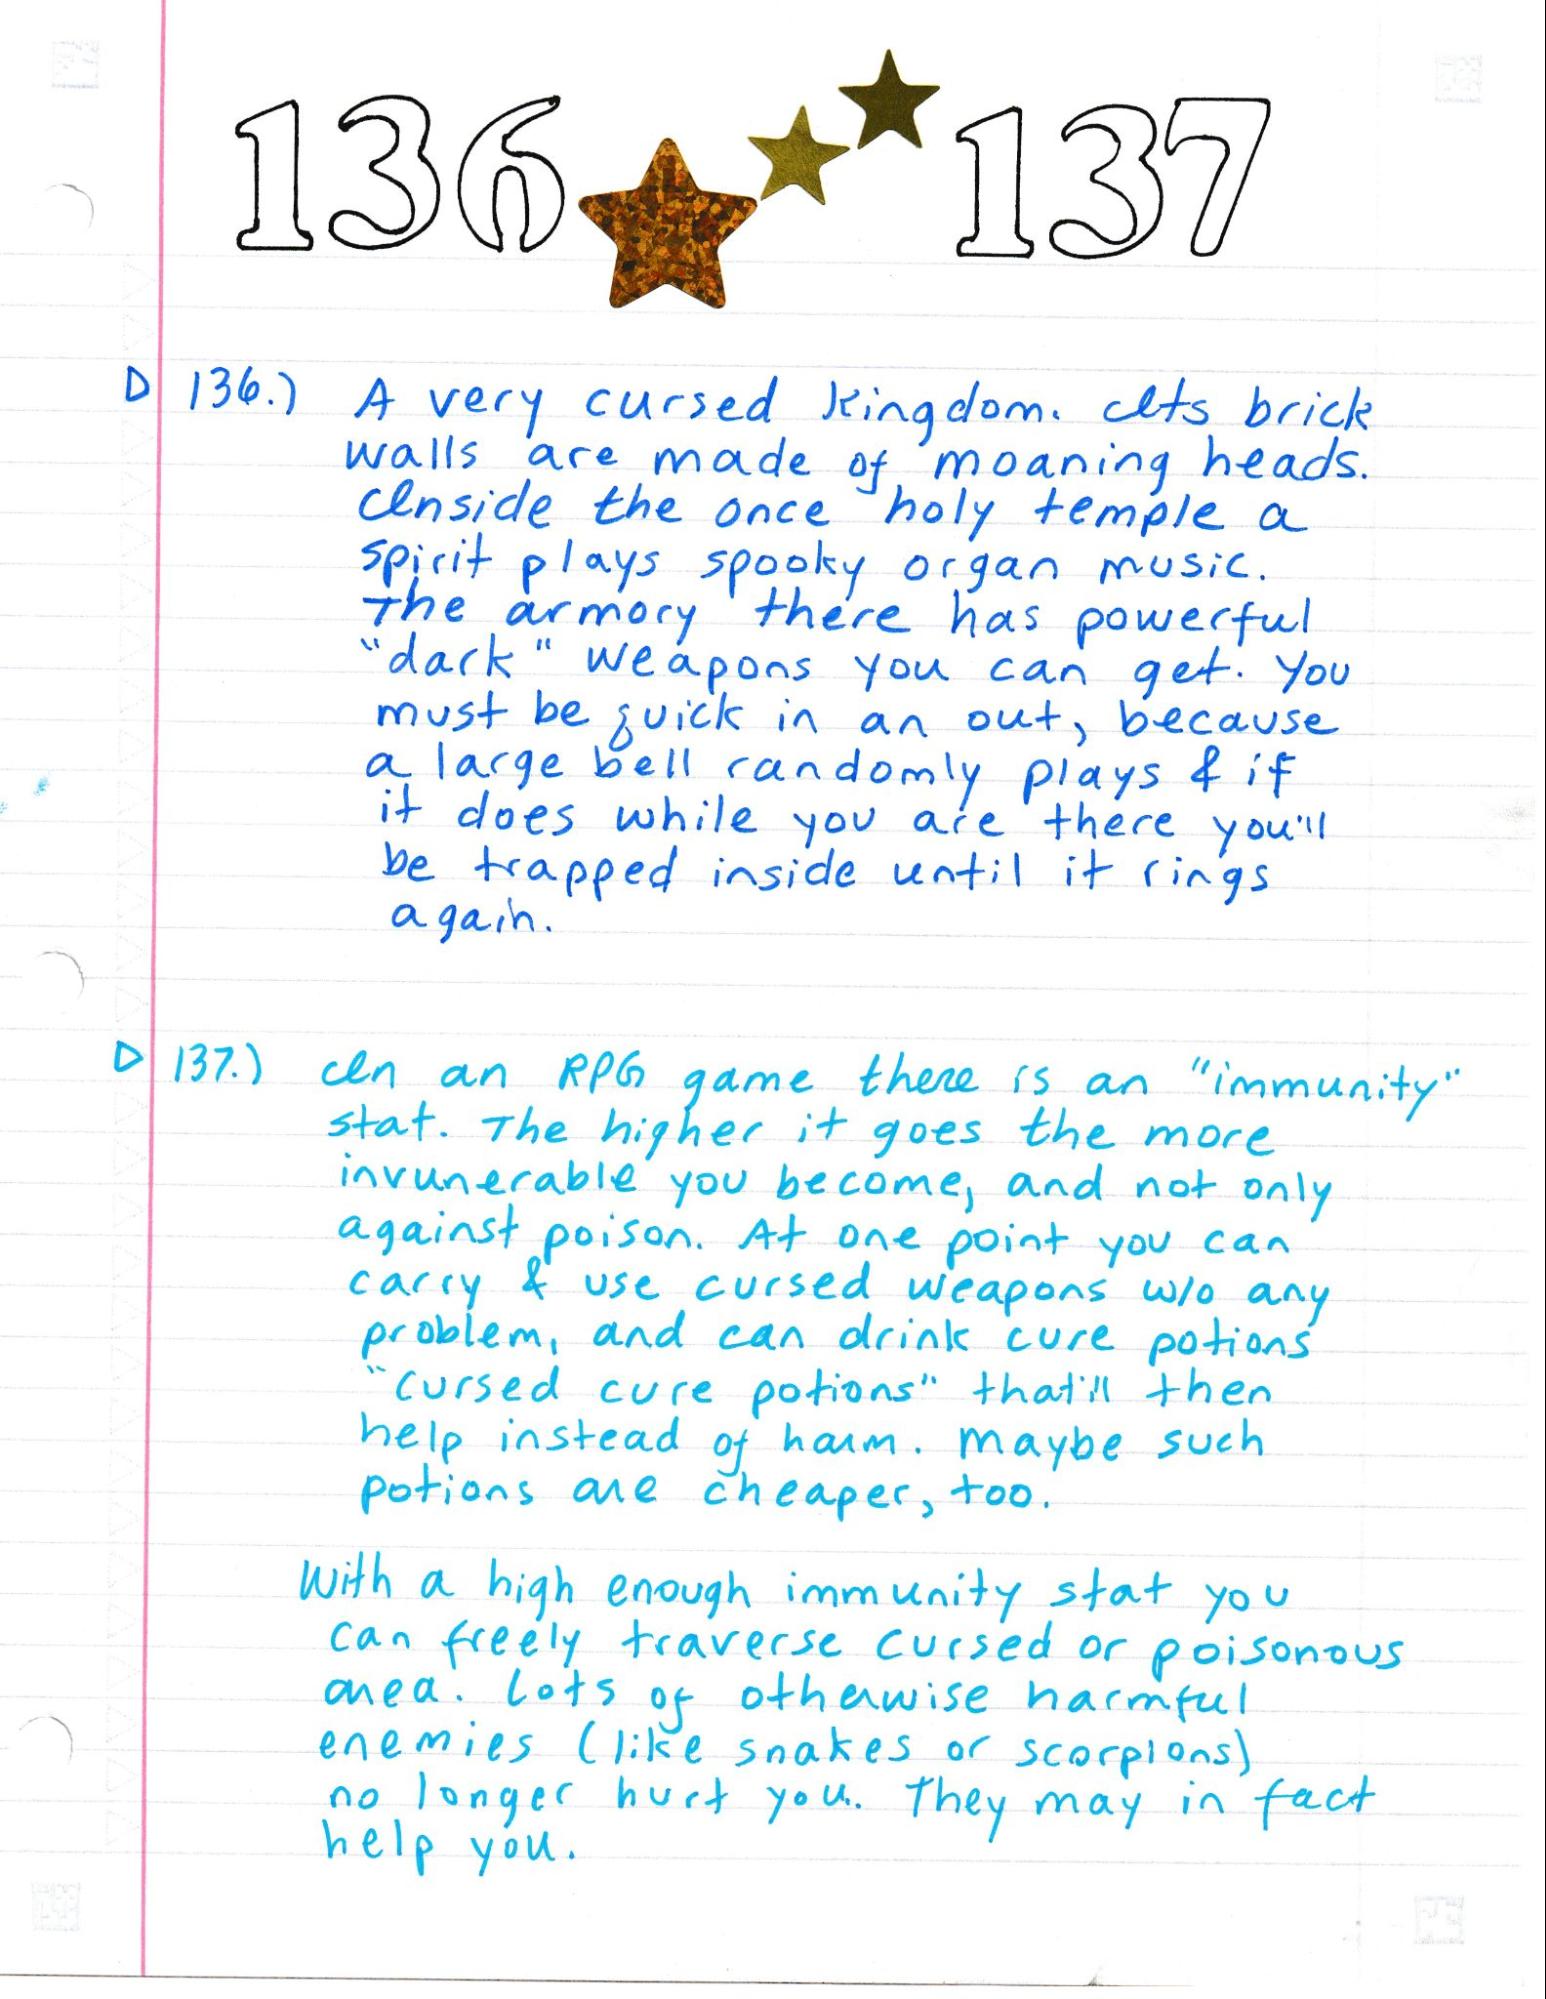 136 137
136.) A very cursed kingdom. Its brick
walls are made of moaning heads.
Inside the once holy temple a
spirit plays spooky organ music.
The armory there has powerful
"dark" weapons you can get. You
must be quick in an out, because
a large bell randomly plays & if
it does while you are there you'll
be trapped inside until it rings
again.
137.) In an RPG game there is an "immunity"
stat. The higher it goes the more
invunerable you become, and not only
against poison. At one point you can
carry & use cursed weapons w/o any
problem, and can drink cure potions
"cursed cure potions" that'll then
help instead of harm. Maybe such
potions are cheaper, too.
With a high enough immunity stat you
can freely traverse cursed or poisonous
area. Lots of otherwise harmful
enemies (like snakes or scorpions)
no longer hurt you. They may in fact
help you.